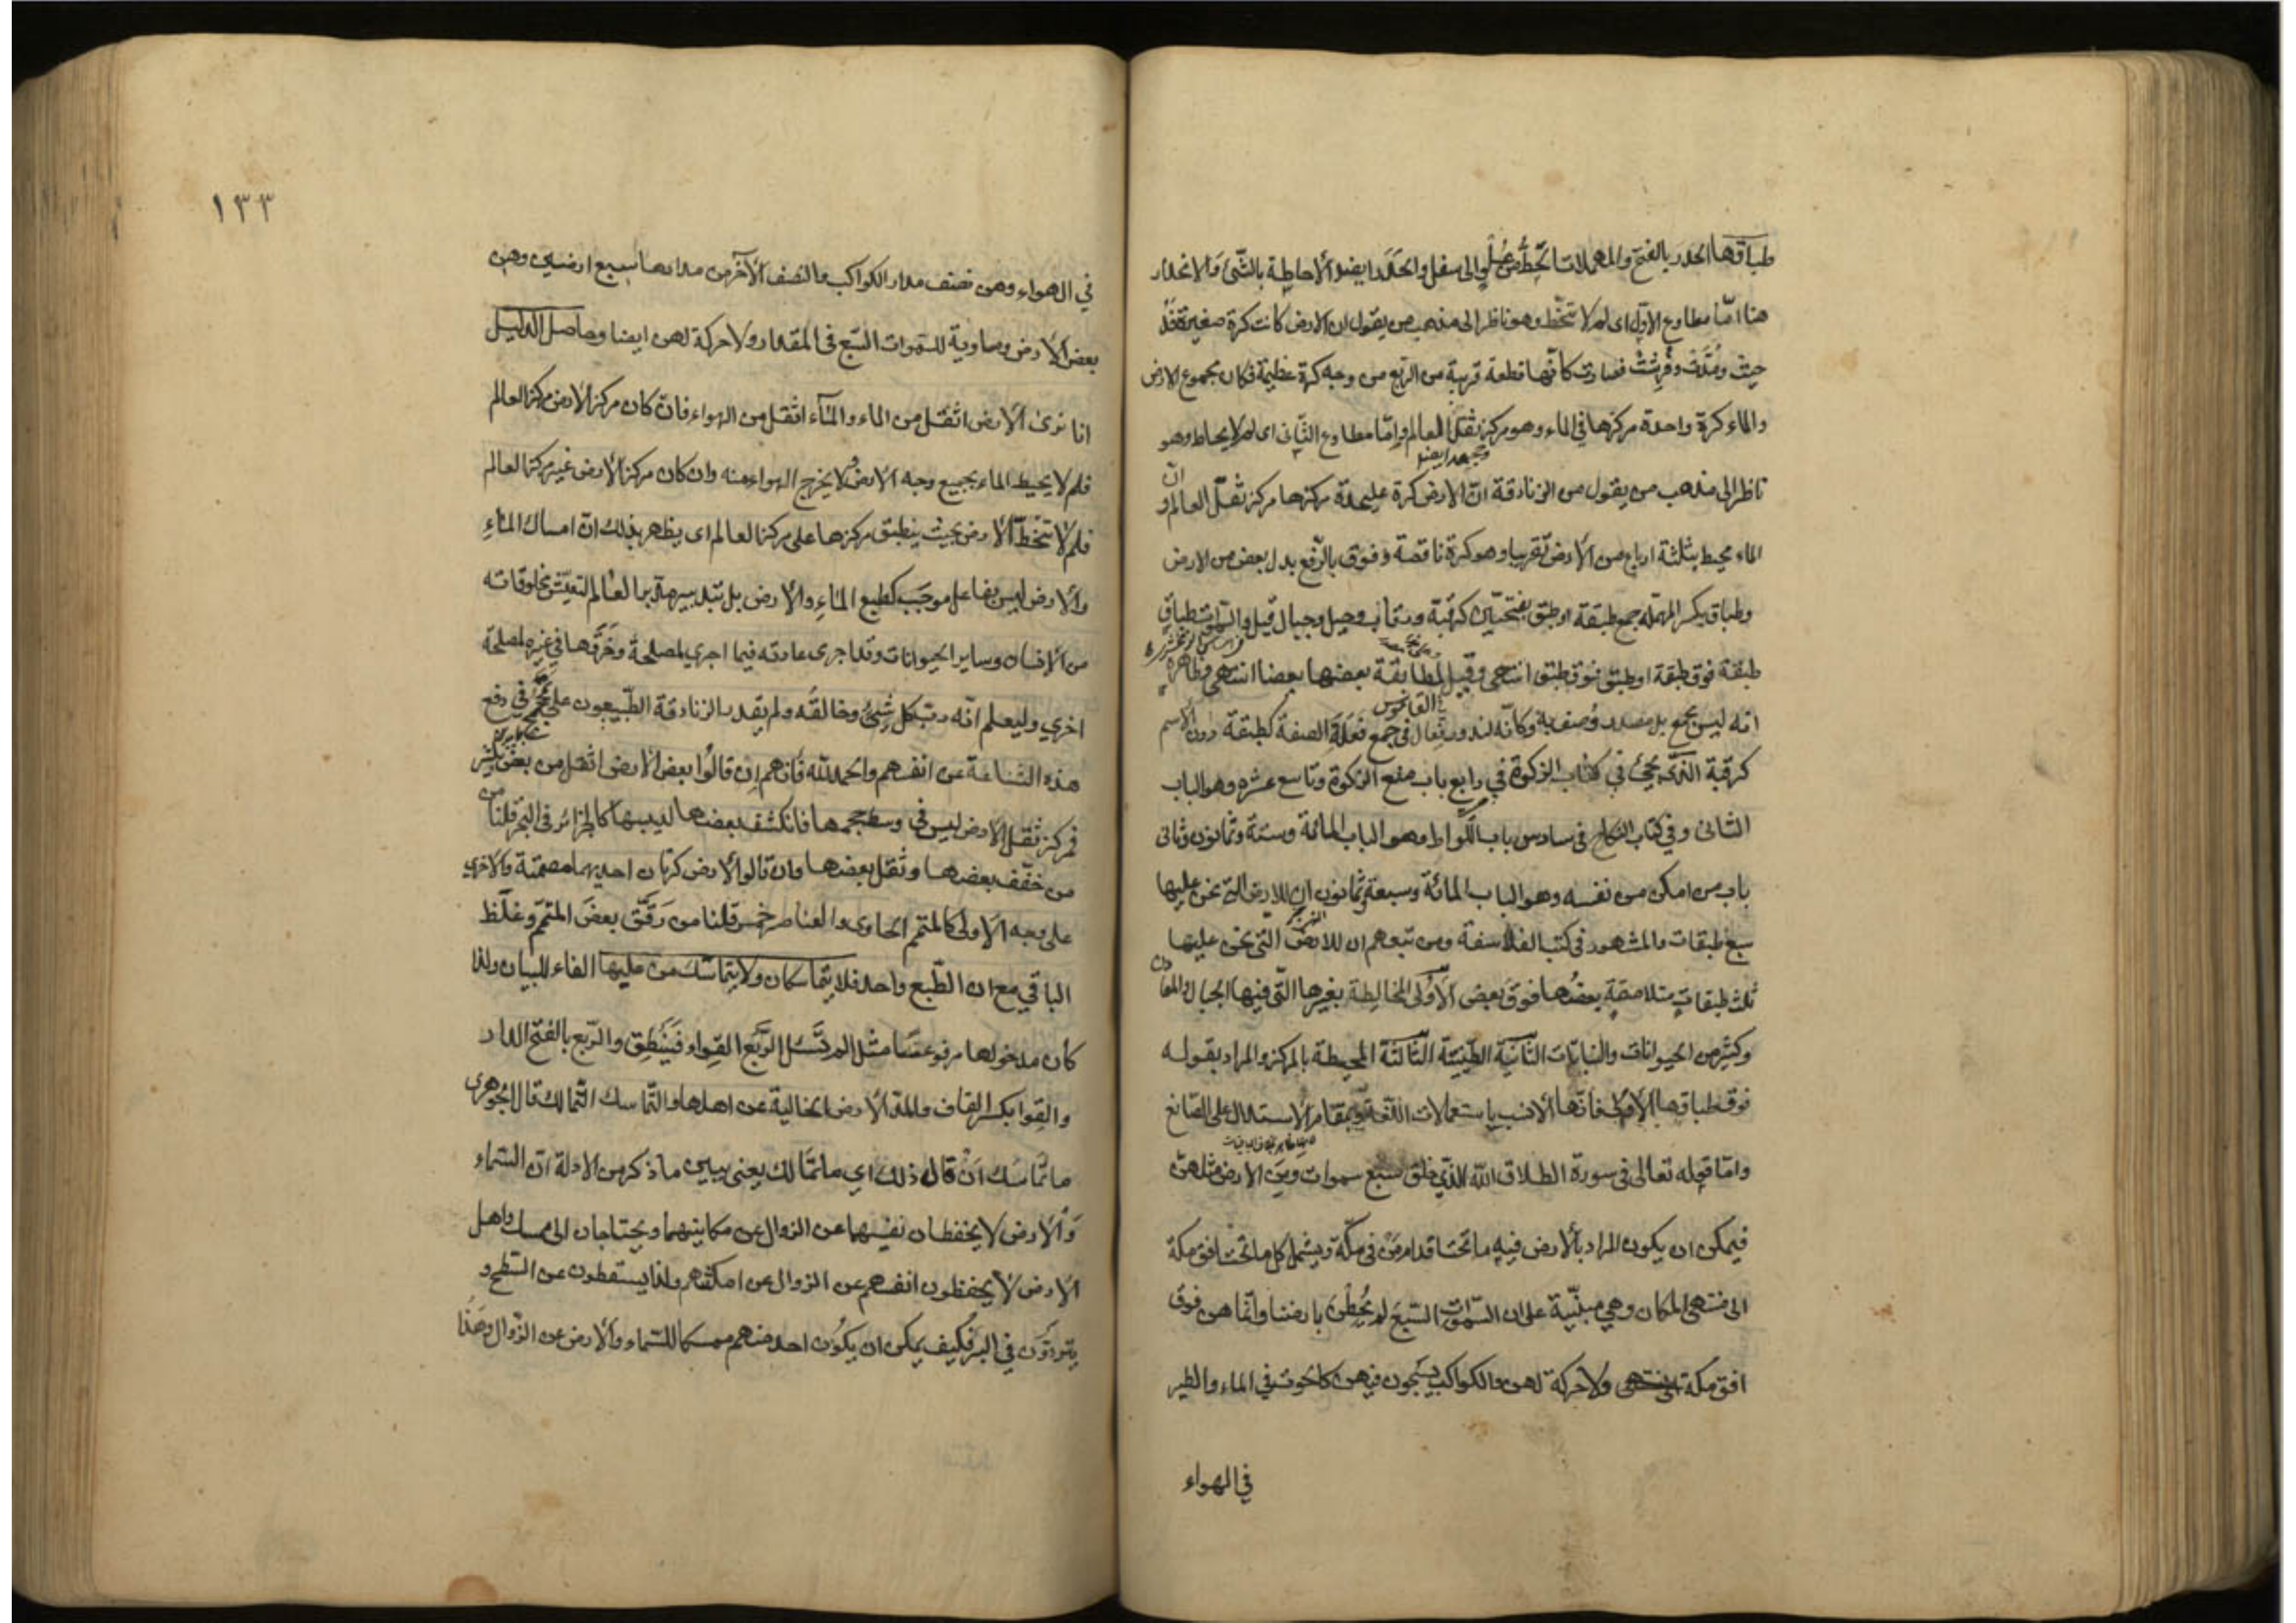 طباقها الحدر بالفتح والمهملات الحطّ من علو الى سفل والحدر ايضا الاحاطة بالشّئ والانحدار
هنا امّا مطاوع الاوّل اى لم لا تنحطّ وهو ناظر الى مذهب من يقول ان الارض كانت كرة صغيرة
ومُدّت وفُرِشت فصارت كانّها قطعة قريبة من الربع من وجه كرة عظيمة فكان مجموع الارض
والماء كرة واحدة مركزها فى الماء وهو مركز ثقل العالم وامّا مطاوع الثّانى اى لم لا يحاط وهو
ناظر الى مذهب من يقول من الزنادقة انّ الارض كرة عليحدة مركزها مركز ثقل العالم وانّ
الماء محيط بثلثة ارباع من الارض تقريبا وهو كرة ناقصة وفوق بالرّفع بدل بعض من الارض
وطباق بكسر المهملة جمع طبقة او طبق بفتحتين كرقبة ورقاب وجبل وجبال قيل والتّهذيب طباق
طبقة فوق طبقة او طبق فوق طبق انتهى وقيل لمطابقة بعضها بعضا انتهى وظاهره
انه ليس بجمع بل مصدر وُصف به وكانّه لندور فِعال فى جمع فَعَلَة الصفة كطبقة دون الاسم
القاموس
كرقبة الّذى يجئ فى كتاب الزكوة فى رابع باب منع الزكوة وتاسع عشره وهو الباب
الثانى وفى كتاب النكاح فى سادس باب اللّواط وهو الباب المائة وستة وثمانون وثانى
باب من امكن من نفسه وهو الباب المائة وسبعة وثمانون ان للارض التى نحن عليها
سبع طبقات والمشهور فى كتب الفلاسفة ومن تبعهم ان للارض التى نحن عليها
ثلث طبقات متلاصقة بعضُها فوقَ بعض الاُولى المخالِطة بغيرها الّتى فيها الجبال والمعادن
وكثير من الحيوانات والنباتات الثّانية الطّينيّة الثّالثة المحيطة بالمركز والمراد بقوله
فوق طباقها الاولى فانّها الانسب باستعمالات اللّغة وبمقام الاستدلال على الصّانع
وامّا قوله تعالى فى سورة الطلاق الله الّذى خلق سبع سموات ومن الارض مثلهنّ
فيمكن ان يكون المراد بالارض فيه ما تحت اقدام من فى مكّة ويشمل كل ما تحت افق مكة
الى منتهى المكان وهى مبنيّة على ان السّموات السّبع لم يُحِطن بارضنا وانّما هن فوق
افق مكة ولا حركة لهن والكواكب يسبحون فيهن كالحوت فى الماء والطير
فى الهواء
١٣٣
فى الهواء وهن نصف مدار الكواكب والنصف الآخر من مدارها سبع ارضين وهن
بعض الارض ومساوية للسّموات السّبع فى المقدار ولا حركة لهن ايضا وحاصل الدليل
انا نرى الارض اثقل من الماء والماء اثقل من الهواء فان كان مركز الارض مركز العالم
فلم لا يحيط الماء بجميع وجه الارض ولا يخرج الهواء منه وان كان مركز الارض غير مركز العالم
فلم لا تنحطّ الارض بحيث ينطبق مركزها على مركز العالم اى يظهر بذلك انّ امساك الماء
والارض ليس بفاعل موجَب كطبع الماء والارض بل بتدبير مدبر العالم لتعيّش مخلوقاته
من الانسان وساير الحيوانات وقد اجرى عادته فيما اجرى لمصلحة وخرّقها فى غيره لمصلحة
اخرى وليعلم انّه ربّ كل شئ وخالقُه ولم يقدر الزنادقة الطّبيعيون على فى دفع
هذه الشّناعة عن انفسهم والحمد لله فانهم ان قالوا بعض الارض اثقل من بعض
فمركز ثقل الارض ليس فى وسط حجمها فانكشف بعضها كالجزائر فى البحر قلنا
من خفّف بعضها وثقل بعضها وان قالوا الارض كرتان احديهما مصمتة والاخرى
على وجه الاولى كالمتمّم الحاوى والعناصر خمس قلنا من رَقّق بعضَ المتمّم وغلّظ
الباقى مع ان الطّبع واحد فلا يتماسكان ولا يتماسك من عليها الفاء للبيان ولذا
كان مدخولها مرفوعًا مثل الم تسأل الرّبع القواء فينطق والرّبع بالفتح الدار
والقوا بكسر القاف والمد الارض الخالية عن اهلها والتّماسك التّمالك قال الجوهرى
ما تماسَك اَن قال ذلك اى ما تمالك يعنى يبين ما ذكر من الادلة انّ السّماء
والارض لا يحفظان نفسهما عن الزوال عن مكانيهما ويحتاجان الى ممسك واهل
الارض لا يحفظون انفسهم عن الزوال عن امكنتهم ولذا يسقطون عن السّطح و
يتردّون فى البئر فكيف يمكن ان يكون احد منهم ممسكا للسّماء والارض عن الزّوال وهذا